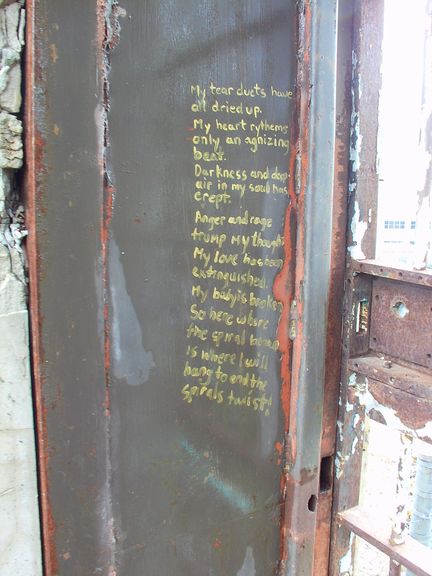 My tear ducts have
all dried up.
My heart rythems
only an agnizing
beat.
Darkness and dep-
air in my soul has
crept.
Anger and rage
trump my though
My love has been
extinguished.
My baby is broken
So here where
the spiral began
is where I will
hang to end the
spirals twist!